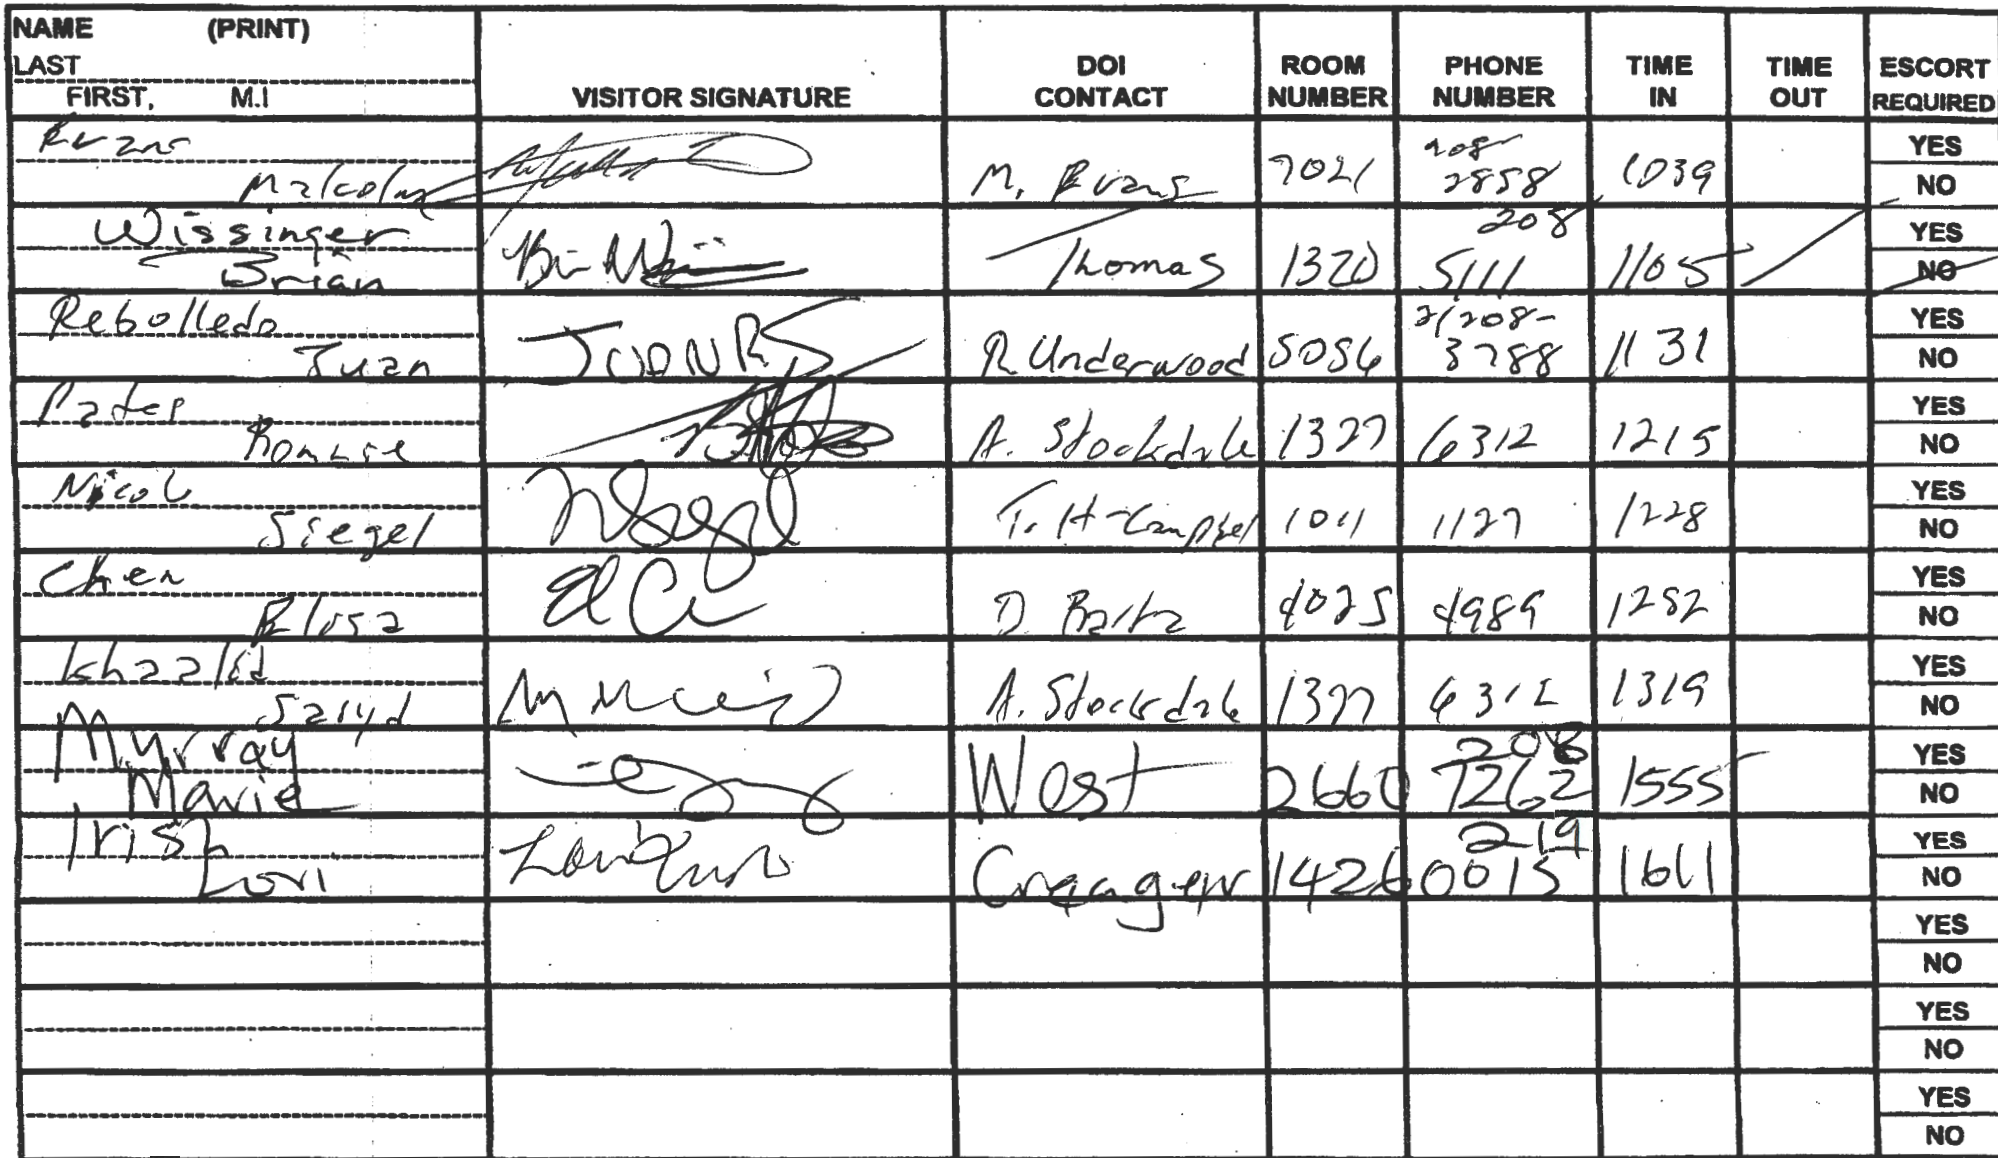 NAME (PRINT)
LAST
FIRST, M.I
VISITOR SIGNATURE
DOI CONTACT
ROOM NUMBER
PHONE NUMBER
TIME IN
TIME OUT
ESCORT REQUIRED
Evans
Malcolm M. Evans 7021 208- 2858 1039 YES NO
Wissinger
Brian Thomas 1320 208 5111 1105 YES NO
Rebolledo
Juan JUANRS R. Underwood 5056 2/208- 3788 1131 YES NO
A. Stockdale 1327 6312 1215 YES NO
Nicol
Siegel NSiegel T. H-Campbel 1011 1127 1228 YES NO
Chen
Elosa D 4025 4989 1252 YES NO
Khaalid
Saiyd A. Stockdale 1327 6312 1319 YES NO
Murray
Marie West 2660 208 7262 1555 YES NO
Irish
Lori Creager 1426 219 0015 1611 YES NO
YES
NO
YES
NO
YES
NO